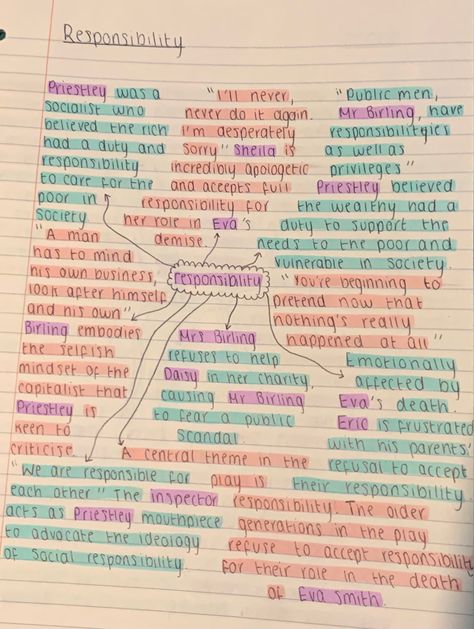 Responsibility
Priestley was a
socialist who
believed the rich
had a duty and
responsibility
to care for the
poor in
society.
"I'll never,
never do it again.
I'm desperately
sorry" Sheila is
incredibly apologetic
and accepts full
responsibility for
her role in Eva's
demise.
"Public men,
Mr Birling, have
responsibilityies
as well as
privileges"
Priestley believed
the wealthy had a
duty to support the
needs to the poor and
vulnerable in society.
responsibility
"A man
has to mind
his own business,
look after himself
and his own"
Birling embodies
the selfish
mindset of the
capitalist that
Priestley is
keen to
criticise.
Mrs Birling
refuses to help
Daisy in her charity,
causing Mr Birling
to fear a public
scandal.
"You're beginning to
pretend now that
nothing's really
happened at all"
Emotionally
affected by
Eva's death.
Eric is frustrated
with his parents'
refusal to accept
their responsibility
"We are responsible for
each other" The inspector
acts as Priestley mouthpiece
to advocate the ideology
of social responsibility.
A central theme in the
play is
responsibility. The older
generations in the play
refuse to accept responsibility
for their role in the death
of Eva Smith.